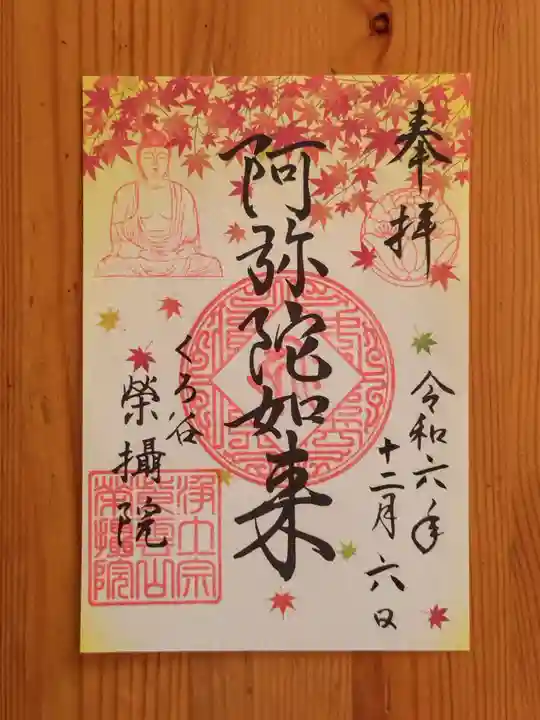 奉拝
令和六年
十二月六日
阿弥陀如来
くろ谷
榮攝院
浄土宗
榮攝院